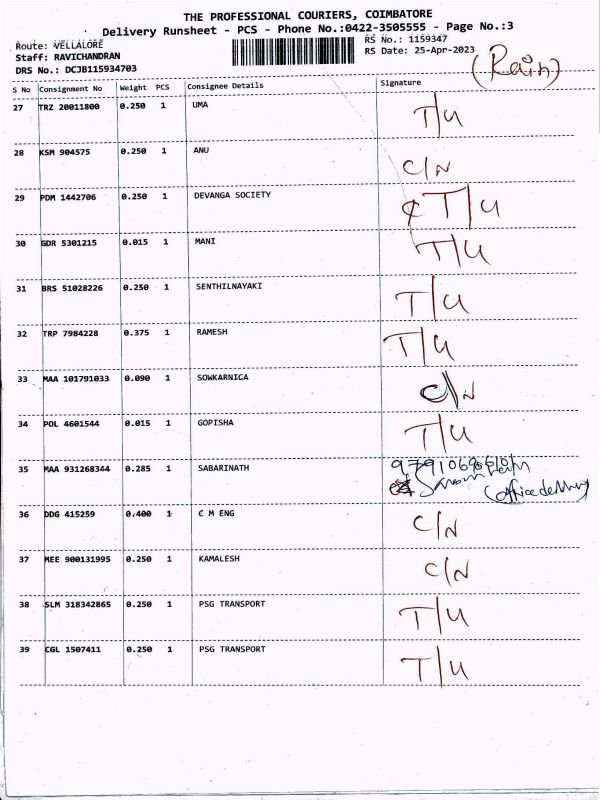 THE PROFESSIONAL COURIERS, COIMBATORE
Delivery Runsheet - PCS - Phone No.:0422-3505555 - Page No.:3
Route: VELLALORE
RS No.: 1159347
Staff: RAVICHANDRAN
RS Date: 25-Apr-2023
(Rain)
DRS No.: DCJB115934703
S No Consignment No Weight PCS Consignee Details Signature
27 TRZ 20011800 0.250 1 UMA T/U
28 KSM 904575 0.250 1 ANU C/N
29 PDM 1442706 0.250 1 DEVANGA SOCIETY T/U
30 GDR 5301215 0.015 1 MANI T/U
31 BRS 51028226 0.250 1 SENTHILNAYAKI T/U
32 TRP 7984228 0.375 1 RAMESH T/U
33 MAA 101791033 0.090 1 SOWKARNICA C/N
34 POL 4601544 0.015 1 GOPISHA T/U
35 MAA 931268344 0.285 1 SABARINATH
36 DDG 415259 0.400 1 C M ENG C/N
37 MEE 900131995 0.250 1 KAMALESH C/N
38 SLM 318342865 0.250 1 PSG TRANSPORT T/U
39 CGL 1507411 0.250 1 PSG TRANSPORT T/U